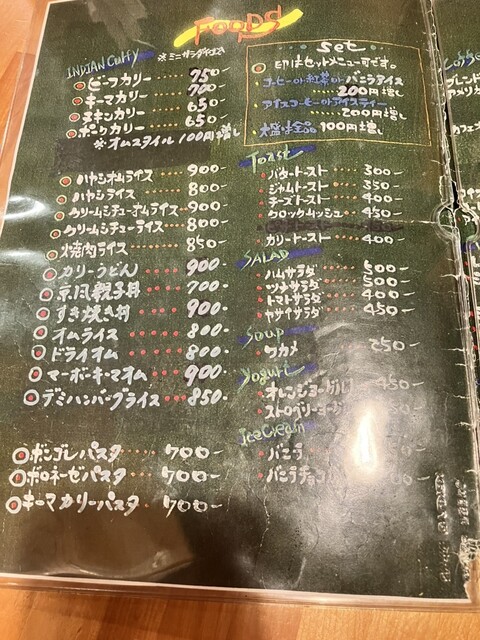 FOODS
INDIAN Curry ※ミニサラダ付
ビーフカリー 750
キーマカリー 700
チキンカリー 650
ポークカリー 650
※オムスタイル 100円増し
ハヤシオムライス 900-
ハヤシライス 800-
クリームシチューオムライス 900-
クリームシチューライス 800-
焼肉ライス 850-
カリーうどん 900-
京風親子丼 700-
すき焼き丼 900-
オムライス 800-
ドライオム 800-
マーボーキーマオム 900-
デミハンバーグライス 850-
ボンゴレパスタ 700-
ボロネーゼパスタ 700-
キーマカリーパスタ 700-
set
印はセットメニューです。
コーヒーor紅茶orバニラアイス
200円増し
アイスコーヒーorアイスティー
200円増し
大盛は全品 100円増し
Toast
バタートースト 300-
ジャムトースト 350
チーズトースト 400-
クロックムッシュ 450-
カリートースト 400-
SALAD
ハムサラダ 500-
ツナサラダ 500-
トマトサラダ 400-
ヤサイサラダ 450-
Soup
ワカメ 250-
Yogurt
オレンジヨーグルト 450-
ストロベリーヨーグルト 450-
IceCream
バニラ
バニラチョコ
ブレンド
アメリカ
カフェ